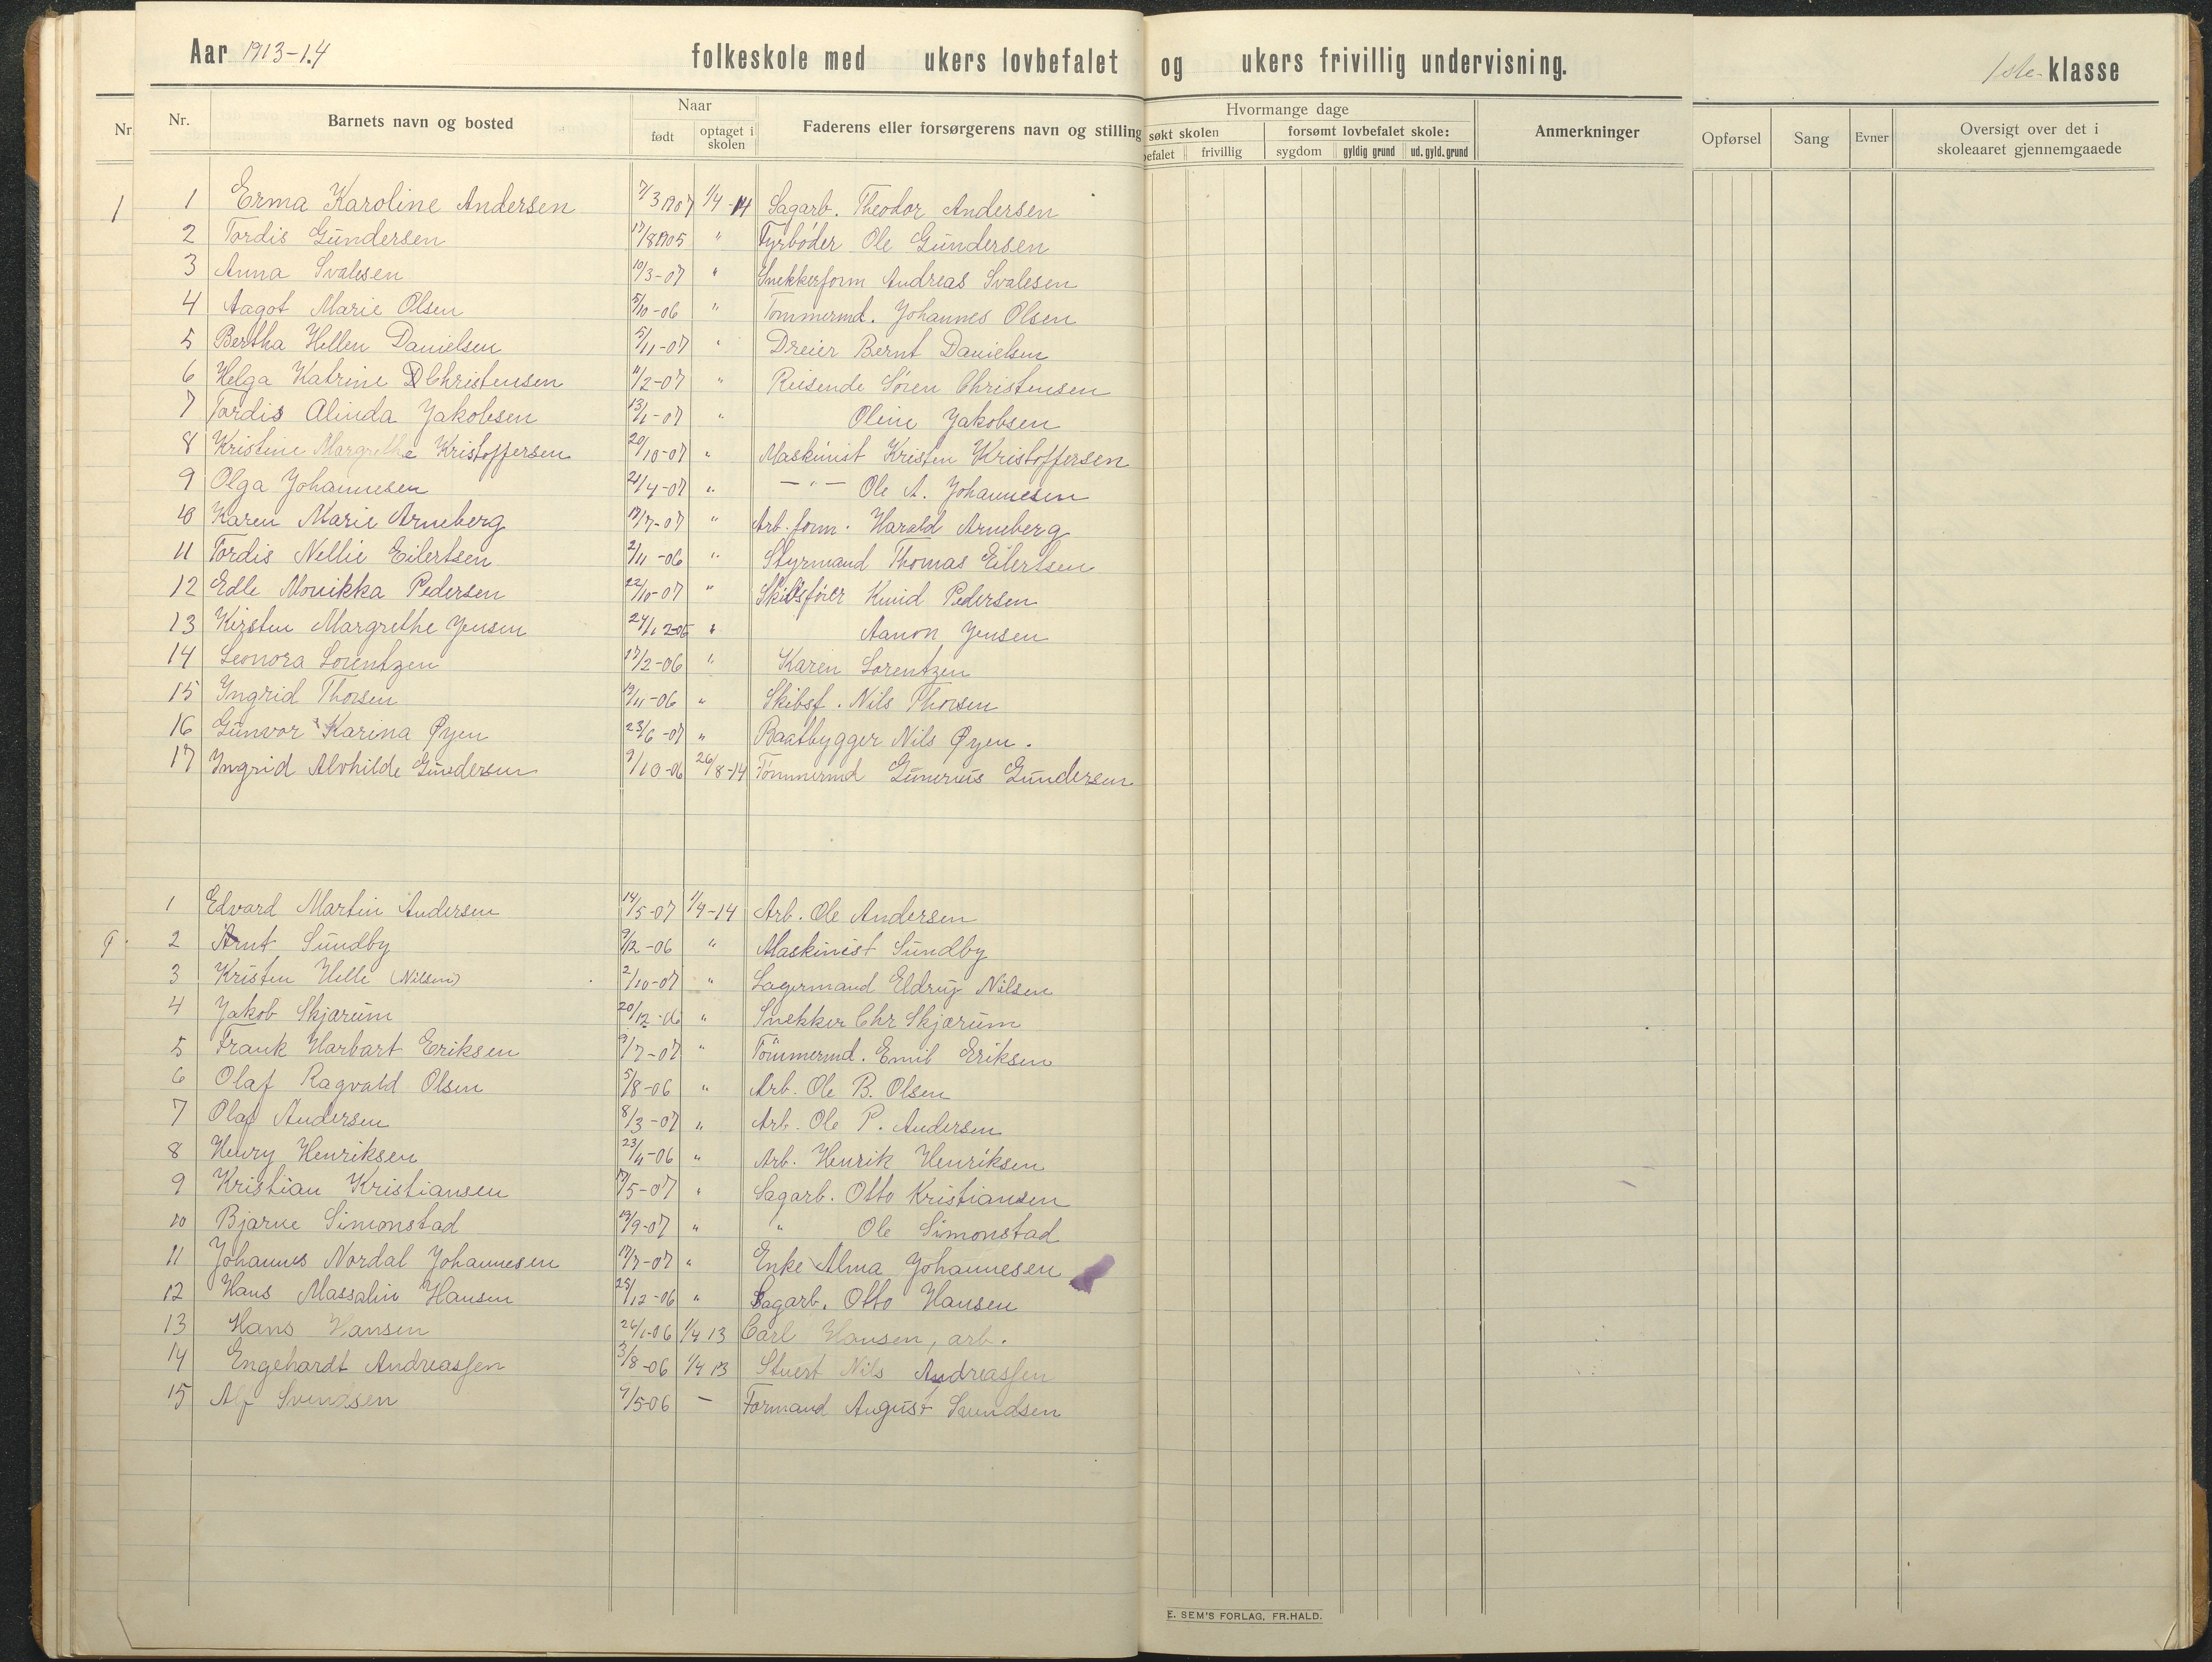 Aar 1913-14 folkeskole med ukers lovbefalet og ukers frivillig undervisning. 1ste klasse
Nr. Nr. Barnets navn og bosted Naar født optaget i skolen Faderens eller forsørgerens navn og stilling Hvormange dage søkt skolen befalet frivillig forsømt lovbefalet skole: sygdom gyldig grund ud. gyld. grund Anmerkninger Opførsel Sang Evner Oversigt over det i skoleaaret gjennemgaaede
1 1 Erma Karoline Andersen 7/3 1907 1/4-14 Sagarb. Theodor Andersen
2 Tordis Gundersen 17/8 1905 " Fyrbøder Ole Gundersen
3 Anna Svalesen 10/3-07 " Snekkerform Andreas Svalesen
4 Aagot Marie Olsen 5/10-06 " Tømmermd. Johannes Olsen
5 Bertha Hellen Danielsen 5/11-07 " Dreier Bernt Danielsen
6 Helga Katrine D Christensen 11/2-07 " Reisende Søren Christensen
7 Tordis Alinda Jakobsen 13/6-07 " Oline Jakobsen
8 Kristine Margrethe Kristoffersen 20/10-07 " Maskinist Kristen Kristoffersen
9 Olga Johannesen 21/4-07 " — " — Ole A. Johannesen
10 Karen Marie Arneberg 17/7-07 " Arb. form. Harald Arneberg
11 Tordis Nellie Eilertsen 2/11-06 " Styrmand Thomas Eilertsen
12 Edle Monikka Pedersen 22/10-07 " Skibsfører Knud Pedersen
13 Kirsten Margrethe Jensen 24/12-05 " Aanon Jensen
14 Leonora Lorentzen 17/2-06 " Karen Lorentzen
15 Ingrid Thorsen 19/11-06 " Skibsf. Nils Thorsen
16 Gunvor Karina Øyen 23/6-07 " Baatbygger Nils Øyen.
17 Ingrid Alvhilde Gundersen 9/10-06 26/8-14 Tømmermd Gunerius Gundersen
1 Edvard Martin Andersen 14/5-07 1/4-14 Arb. Ole Andersen
9 2 Arnt Sundby 9/12-06 " Maskinist Sundby
3 Kristen Helle (Nilsen) 2/10-07 " Lagermand Nilsen
4 Jakob Skjærum 20/12-06 " Snekker Chr Skjærum
5 Frank Harbart Eriksen 9/7-07 " Tømmermd. Emil Eriksen
6 Olaf Ragvald Olsen 5/8-06 " Arb. Ole B. Olsen
7 Olaf Andersen 8/3-07 " Arb. Ole P. Andersen
8 Henry Henriksen 23/4-06 " Arb. Henrik Henriksen
9 Kristian Kristiansen 17/5-07 " Sagarb. Otto Kristiansen
10 Bjarne Simonstad 19/9-07 " " Ole Simonstad
11 Johannes Nordal Johannesen 17/7-07 " Enke Alma Johannesen
12 Hans Massalin Hansen 25/12-06 " Sagarb. Otto Hansen
13 Hans Hansen 26/1-06 1/4 13 Carl Hansen, arb.
14 Engehardt Andreassen 3/8-06 1/4 13 Stuert Nils Andreassen
15 Alf Svendsen 9/5-06 — Formand August Svendsen
E. SEM'S FORLAG, FR.HALD.